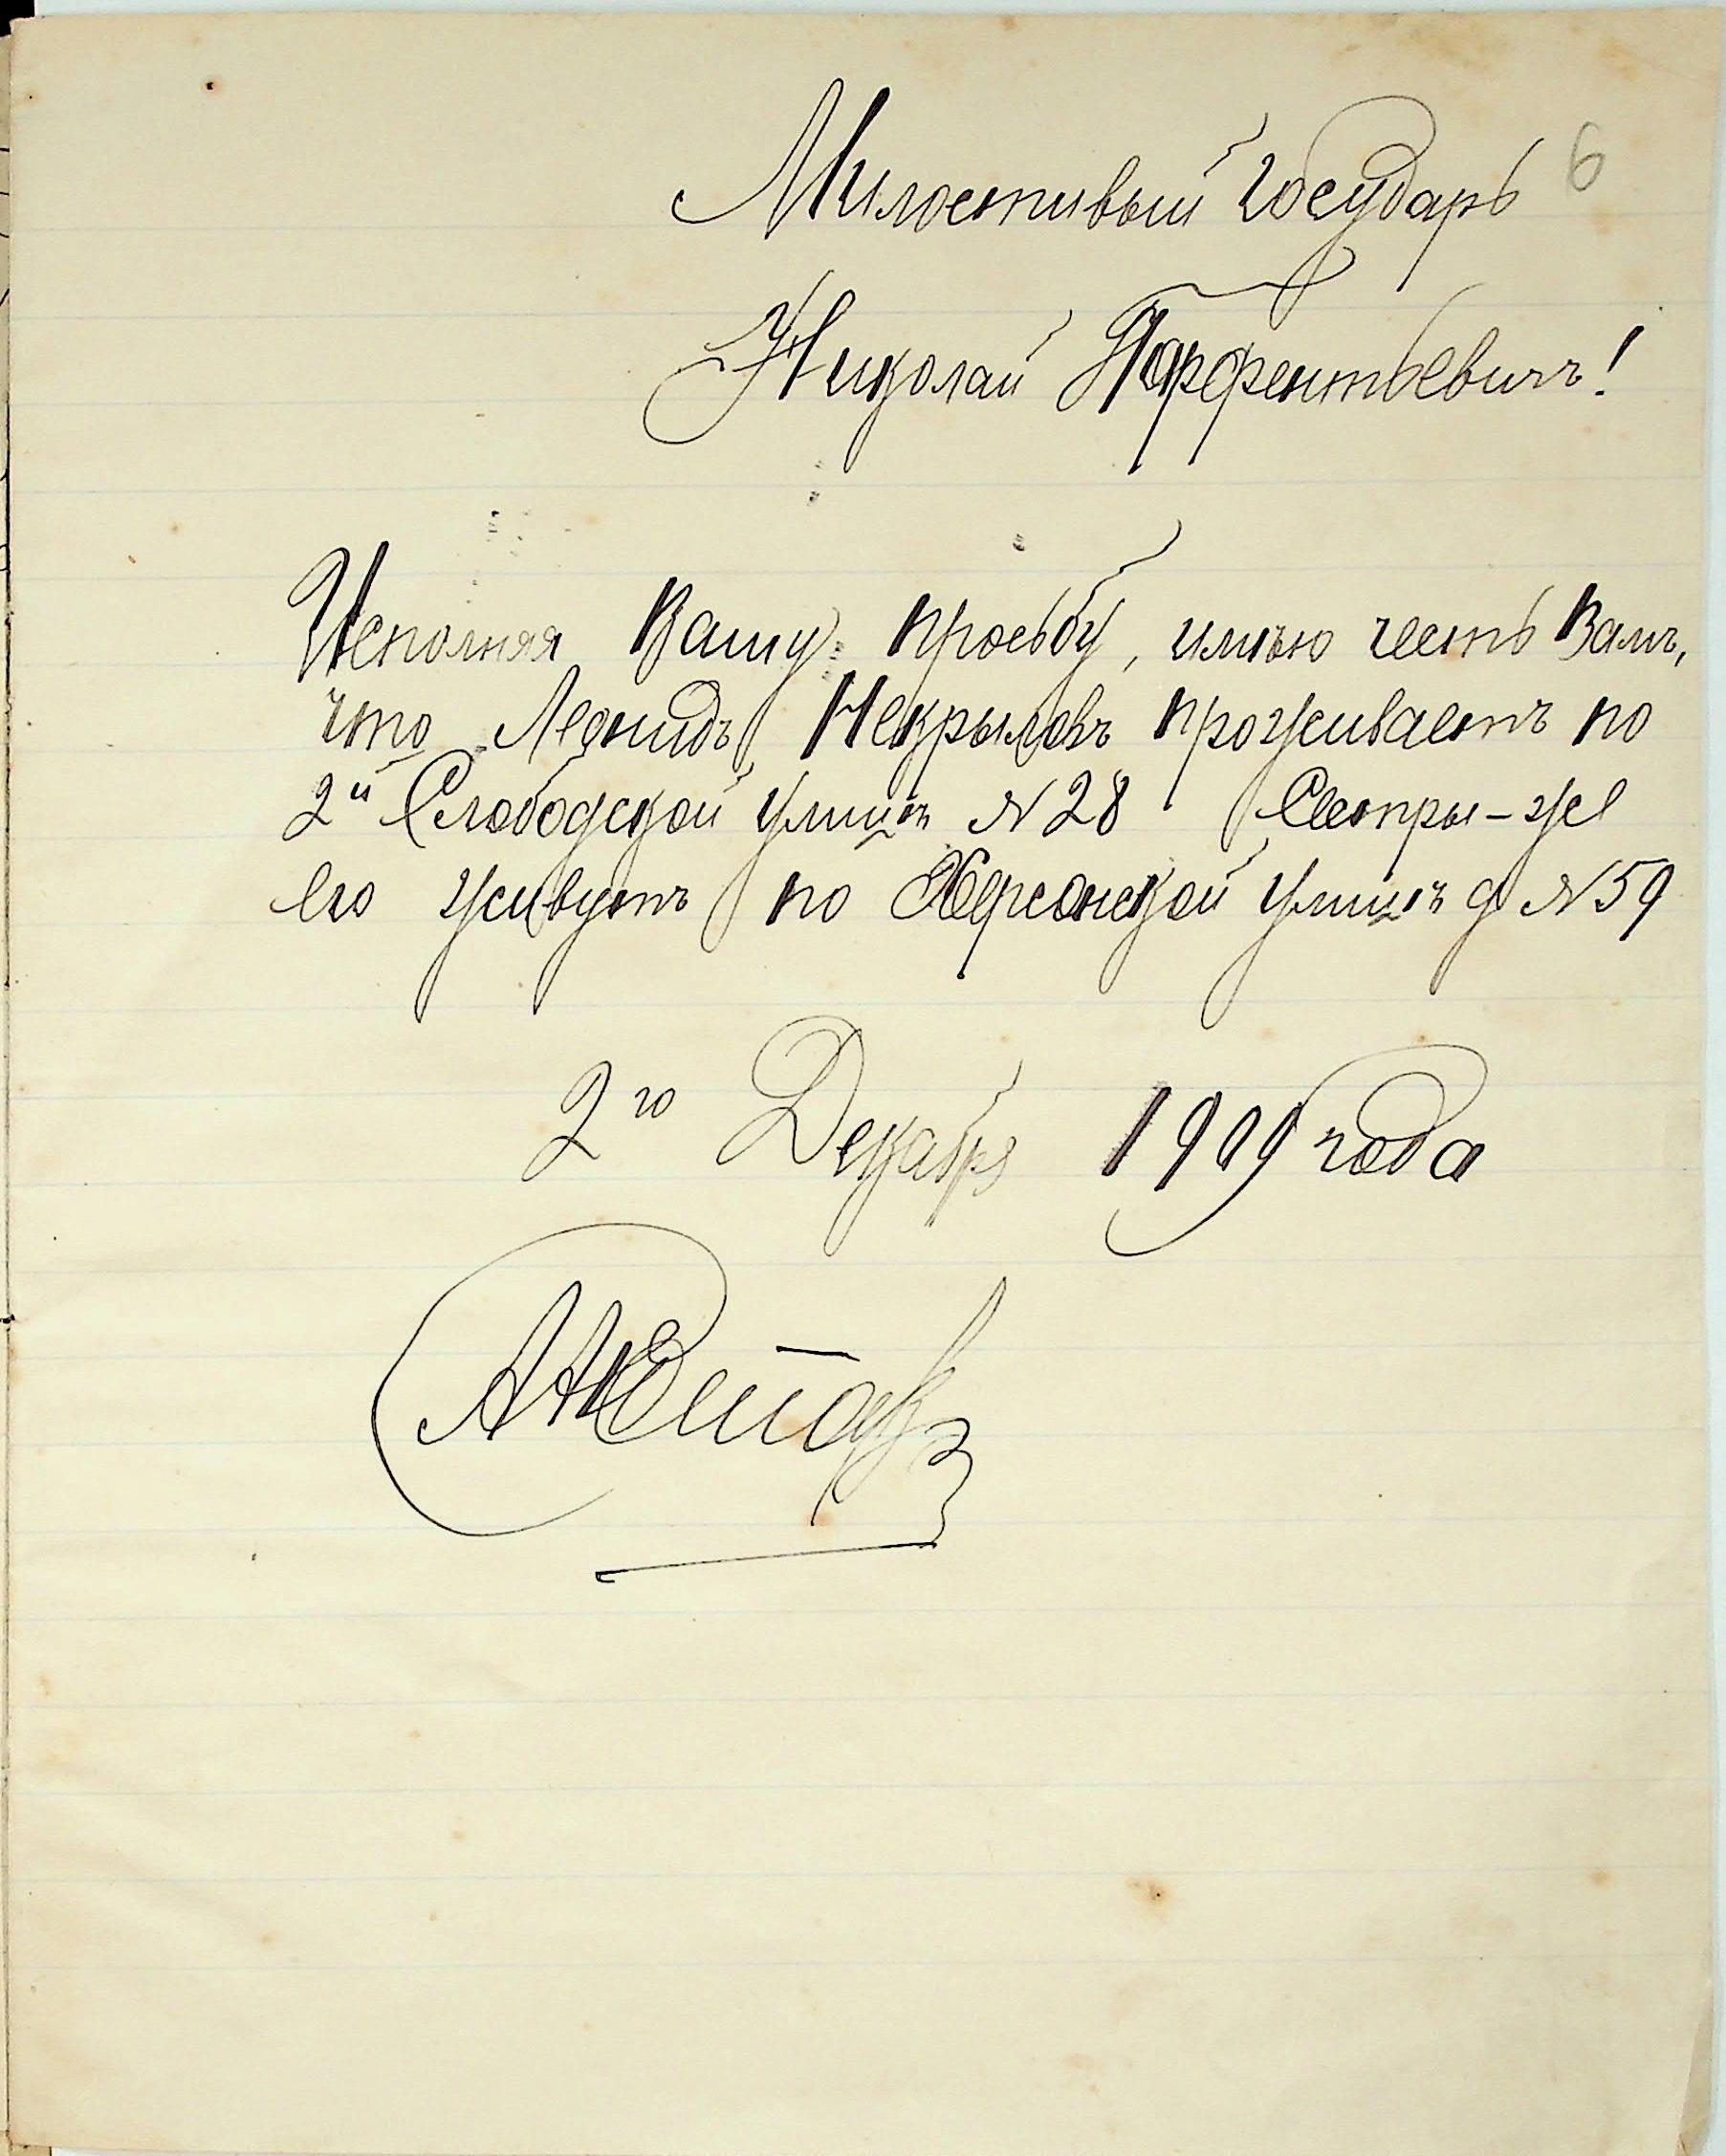 6
Милостивый Государь
Николай Парфентьевичъ!
Исполняя Вашу просьбу, имѣю честь Вамъ,
что Леонидъ Некрыловъ проживаетъ по
2й Слободской улицѣ N 28 Сестры-же
его живутъ по Херсонской улицѣ д N 59
2го Декабря 1909 года